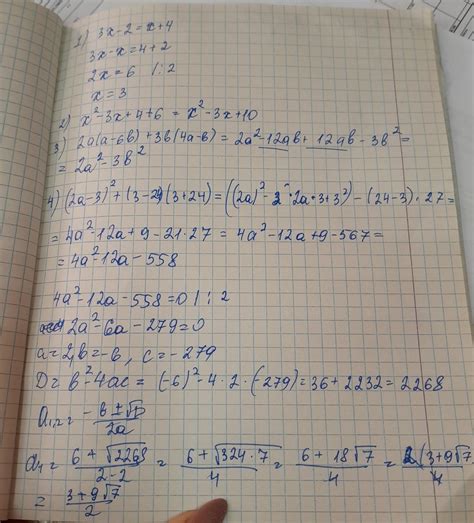 1) 3x-2=x+4
3x-x=4+2
2x=6 |:2
x=3
2) x²-3x+4+6 = x²-3x+10
3) 2a(a-6b)+3b(4a-b) = 2a²-12ab+12ab-3b²=
= 2a²-3b²
4) (2a-3)²+(3-24)(3+24) = ((2a)²-2·2a·3+3²)-(24-3)·27=
= 4a²-12a+9-21·27 = 4a²-12a+9-567=
= 4a²-12a-558
4a²-12a-558=0 |:2
2a²-6a-279=0
a=2, b=-6, c=-279
D=b²-4ac = (-6)²-4·2·(-279)=36+2232=2268
a₁,₂= -b±√D/2a
a₁= 6+√2268/2-2 = 6+√324·7/4 = 6+18√7/4 = 2(3+9√7/4
= 3+9√7/2